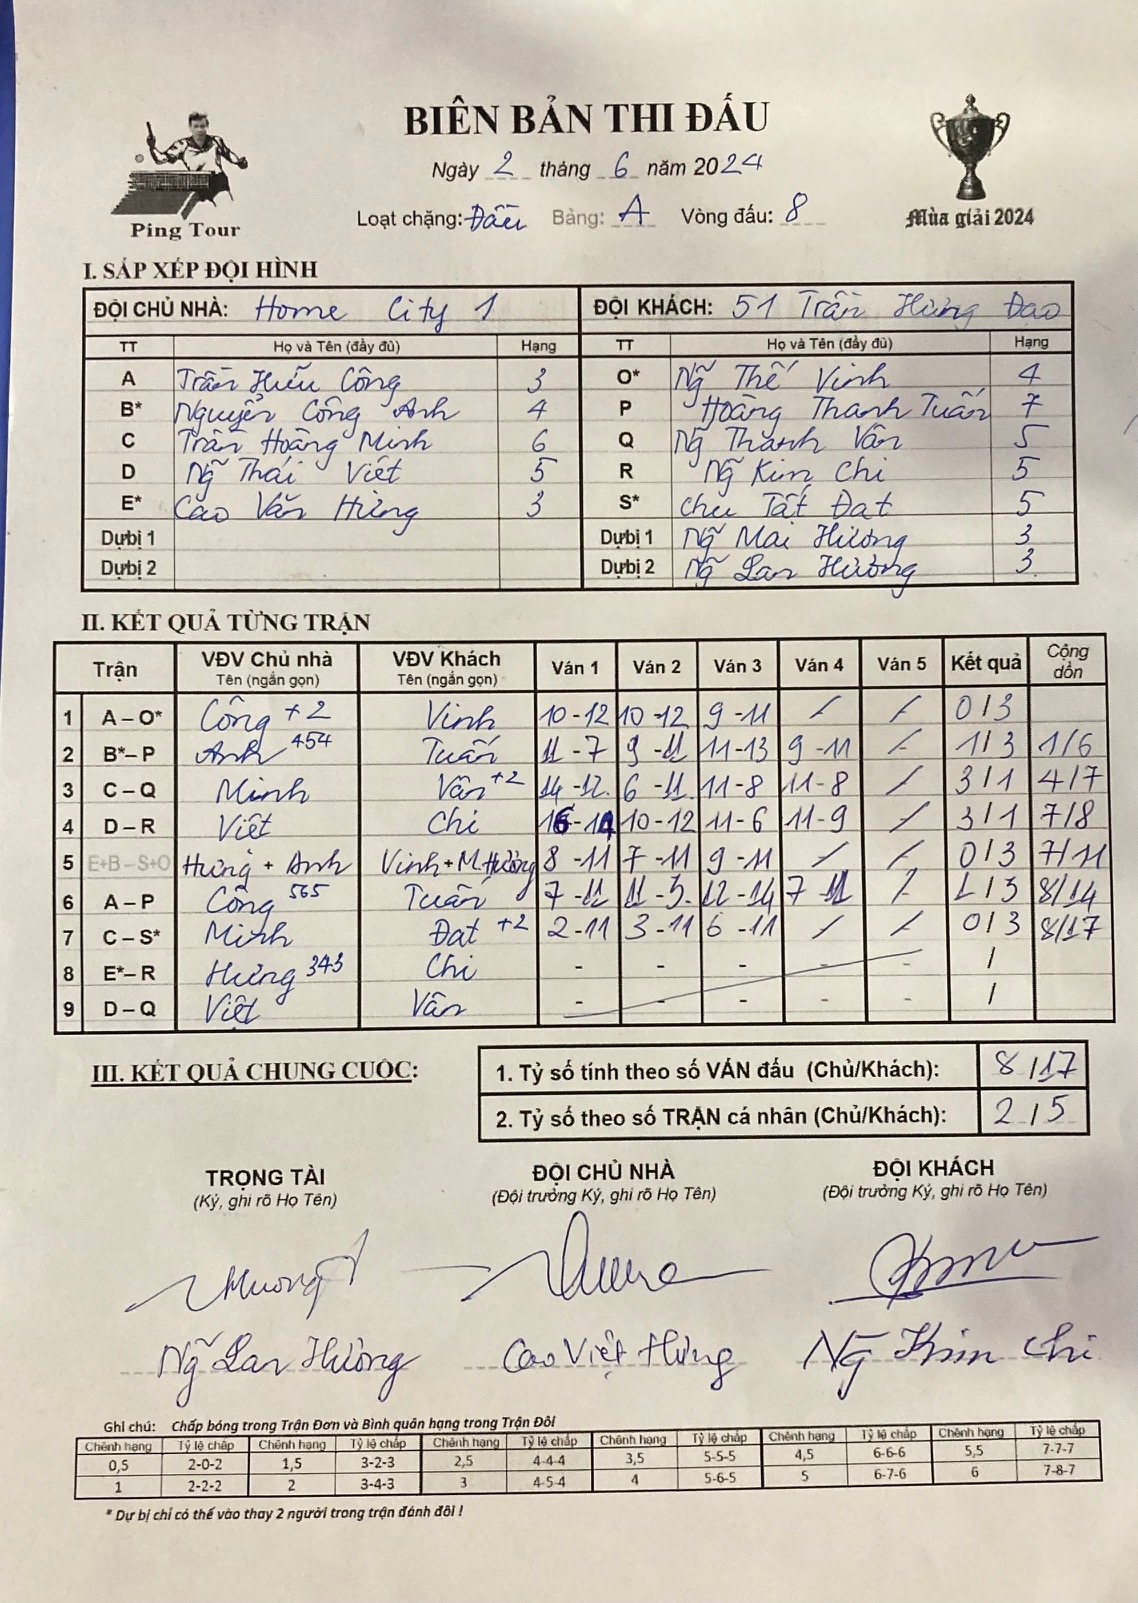 BIÊN BẢN THI ĐẤU
Ngày 2 tháng 6 năm 2024
Ping Tour
Loạt chặng: Đấu Bảng: A Vòng đấu: 8
Mùa giải 2024
I. SẮP XẾP ĐỘI HÌNH
ĐỘI CHỦ NHÀ: Home City 1 ĐỘI KHÁCH: 51 Trần Hưng Đạo
TT Họ và Tên (đầy đủ) Hạng TT Họ và Tên (đầy đủ) Hạng
A Trần Hữu Công 3 O* Ng̃ Thế Vinh 4
B* Nguyễn Công Anh 4 P Hoàng Thanh Tuấn 7
C Trần Hoàng Minh 6 Q Ng̃ Thanh Vân 5
D Ng̃ Thái Việt 5 R Ng̃ Kim Chi 5
E* Cao Văn Hưng 3 S* Chu Tất Đạt 5
Dự bị 1 Dự bị 1 Ng̃ Mai Hương 3
Dự bị 2 Dự bị 2 Ng̃ Lan Hương 3
II. KẾT QUẢ TỪNG TRẬN
Trận VĐV Chủ nhà Tên (ngắn gọn) VĐV Khách Tên (ngắn gọn) Ván 1 Ván 2 Ván 3 Ván 4 Ván 5 Kết quả Cộng dồn
1 A – O* Công +2 Vinh 10-12 10-12 9-11 / / 0/3
2 B* – P Anh 454 Tuấn 11-7 9-11 11-13 9-11 / 1/3 1/6
3 C – Q Minh Vân +2 14-12 6-11 11-8 11-8 / 3/1 4/7
4 D – R Việt Chi 16-14 10-12 11-6 11-9 / 3/1 7/8
5 E+B – S+O Hưng + Anh Vinh + M.Hương 8-11 7-11 9-11 / / 0/3 7/11
6 A – P Công 565 Tuấn 7-11 11-5 12-14 7-11 / 1/3 8/14
7 C – S* Minh Đạt +2 2-11 3-11 6-11 / / 0/3 8/17
8 E* – R Hưng 343 Chi - - - - - /
9 D – Q Việt Vân - - - - - /
III. KẾT QUẢ CHUNG CUỘC:
1. Tỷ số tính theo số VÁN đấu (Chủ/Khách): 8/17
2. Tỷ số theo số TRẬN cá nhân (Chủ/Khách): 2/5
TRỌNG TÀI ĐỘI CHỦ NHÀ ĐỘI KHÁCH
(Ký, ghi rõ Họ Tên) (Đội trưởng Ký, ghi rõ Họ Tên) (Đội trưởng Ký, ghi rõ Họ Tên)
Ng̃ Lan Hương Cao Việt Hưng Ng̃ Kim Chi
Ghi chú: Chấp bóng trong Trận Đơn và Bình quân hạng trong Trận Đôi
Chênh hạng Tỷ lệ chấp Chênh hạng Tỷ lệ chấp Chênh hạng Tỷ lệ chấp Chênh hạng Tỷ lệ chấp Chênh hạng Tỷ lệ chấp Chênh hạng Tỷ lệ chấp
0,5 2-0-2 1,5 3-2-3 2,5 4-4-4 3,5 5-5-5 4,5 6-6-6 5,5 7-7-7
1 2-2-2 2 3-4-3 3 4-5-4 4 5-6-5 5 6-7-6 6 7-8-7
* Dự bị chỉ có thể vào thay 2 người trong trận đánh đôi !